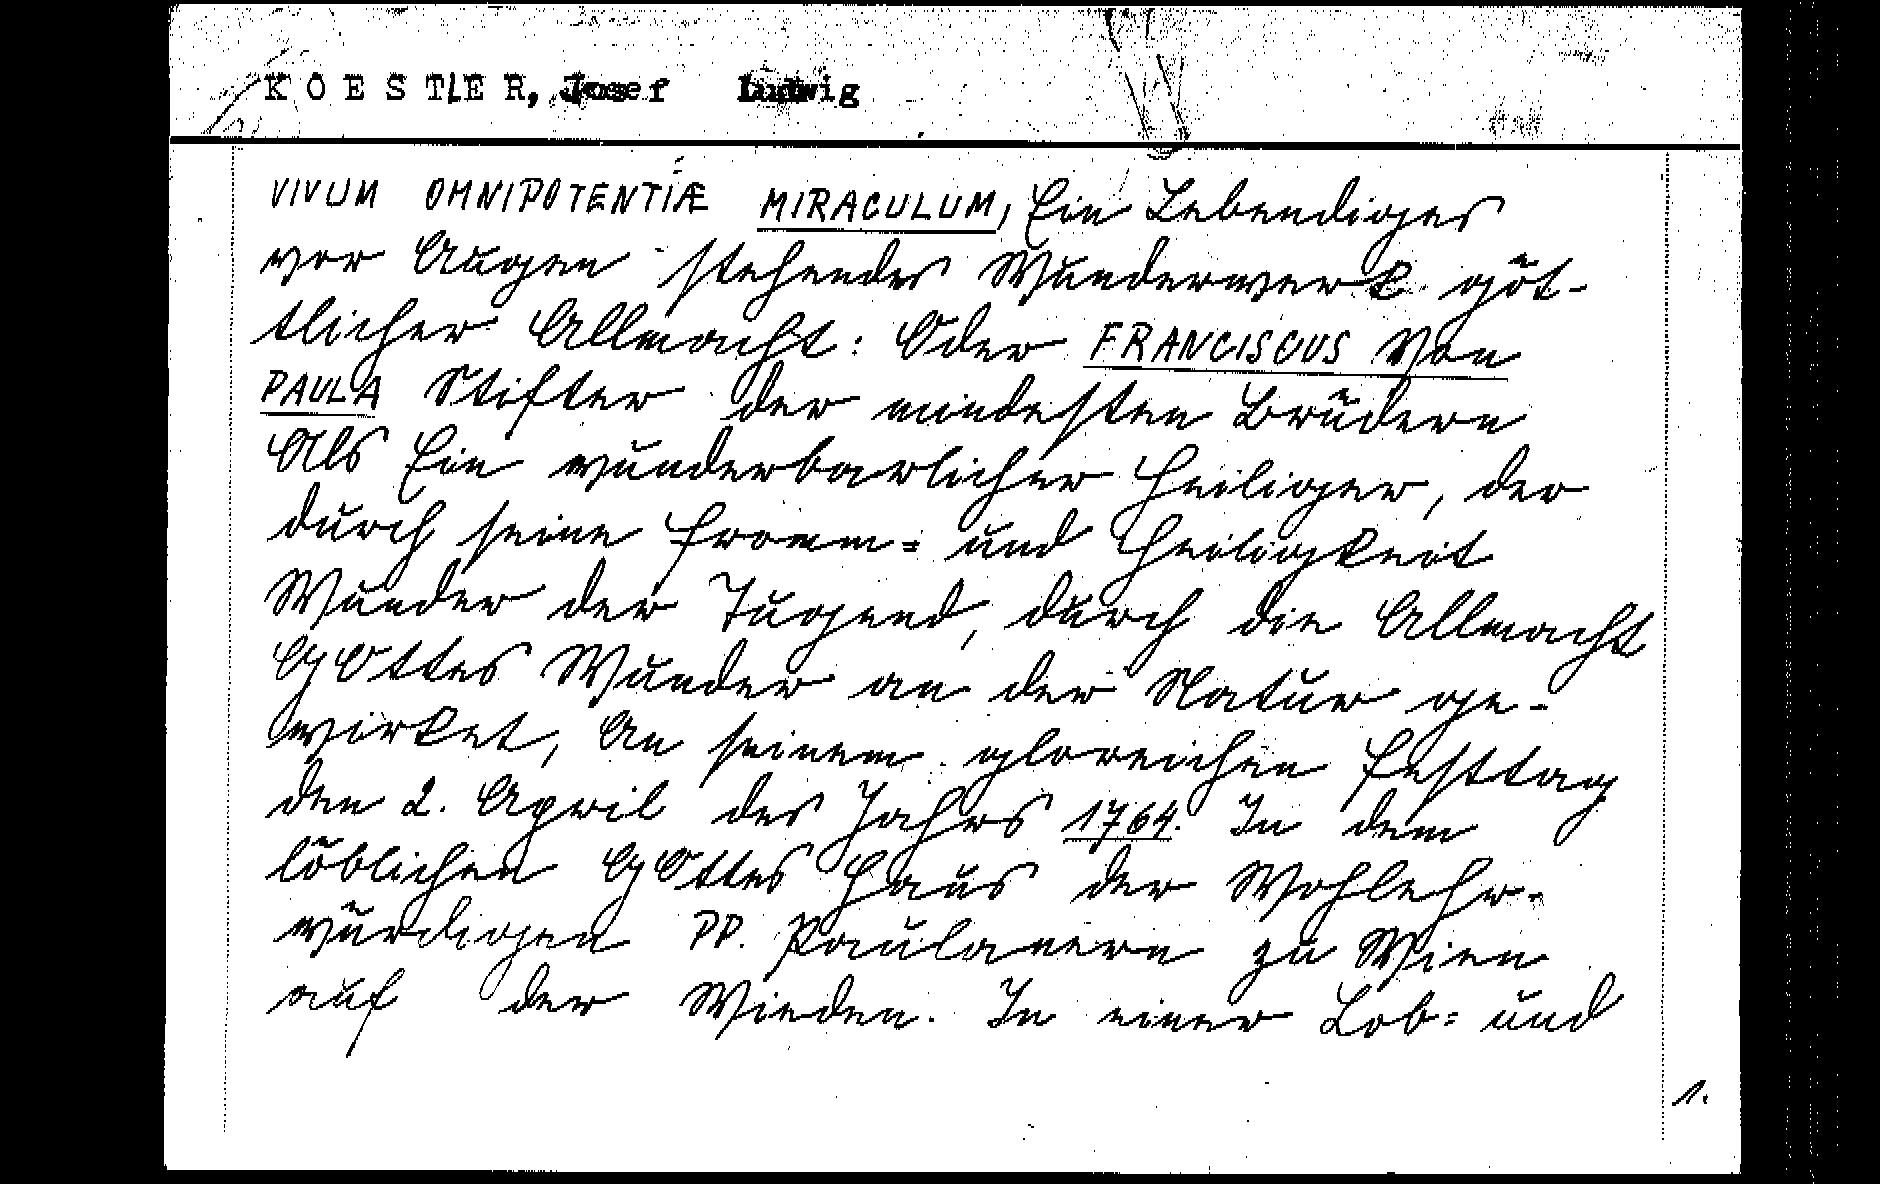 KOESTLER, Josef Ludwig
VIVUM OMNIPOTENTIÆ MIRACULUM, Ein Lebendiges
vor Augen stehendes Wunderwerk göt-
tlicher Allmacht: Oder FRANCISCUS Von
PAULA Stifter der mindesten Brüdern
Als Ein wunderbarlicher Heiliger, der
durch seine Fromm= und Heiligkeit
Wunder der Tugend, durch die Allmacht
GOttes Wunder an der Natur ge-
wirket, An seinem gloreichen Festtag
den 2. April des Jahrs 1764. In dem
löblichen GOttes Haus der Wohlehr-
würdigen PP. Paulanern zu Wien
auf der Wieden. In einer Lob= und
1.